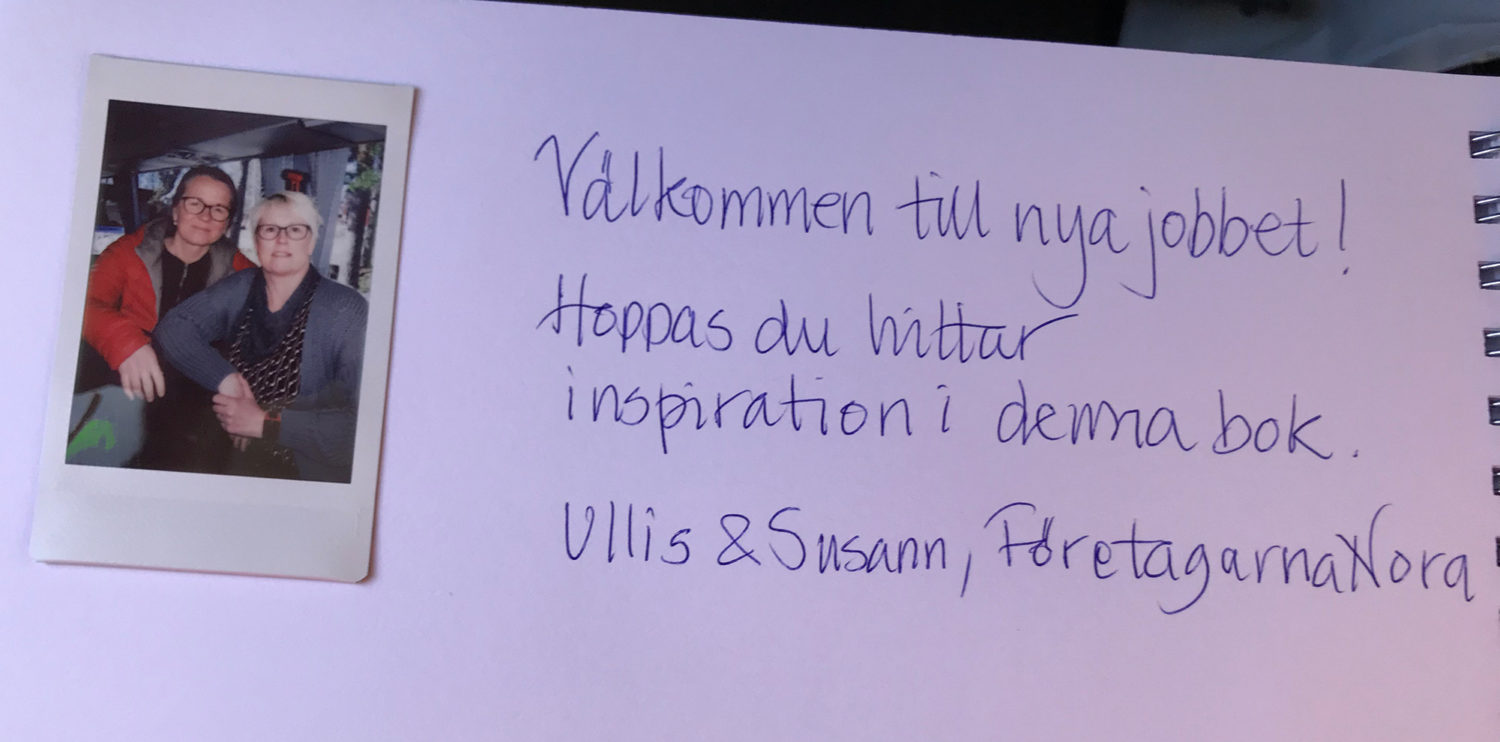 Välkommen till nya jobbet!
Hoppas du hittar
inspiration i denna bok.
Ullis & Susann, Företagarna Nora